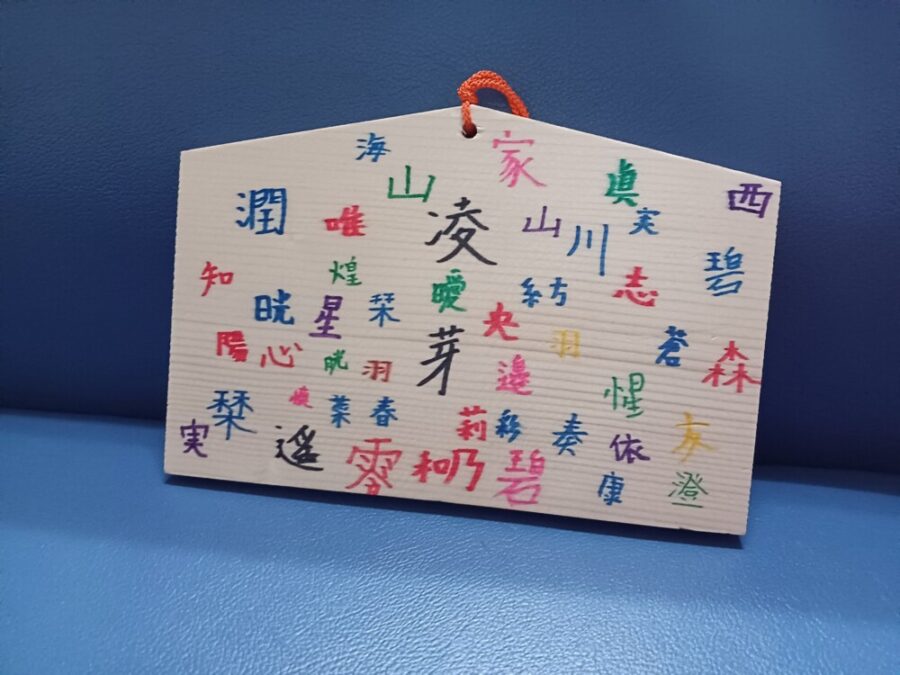 海
家
山
眞
西
潤
唯
凌
山
川
実
碧
知
煌
曖
紡
志
晄
星
栞
央
羽
蒼
陽
心
晄
羽
芽
邉
惺
森
栞
菜
春
莉
彩
奏
依
友
実
遥
零
和
乃
碧
康
澄